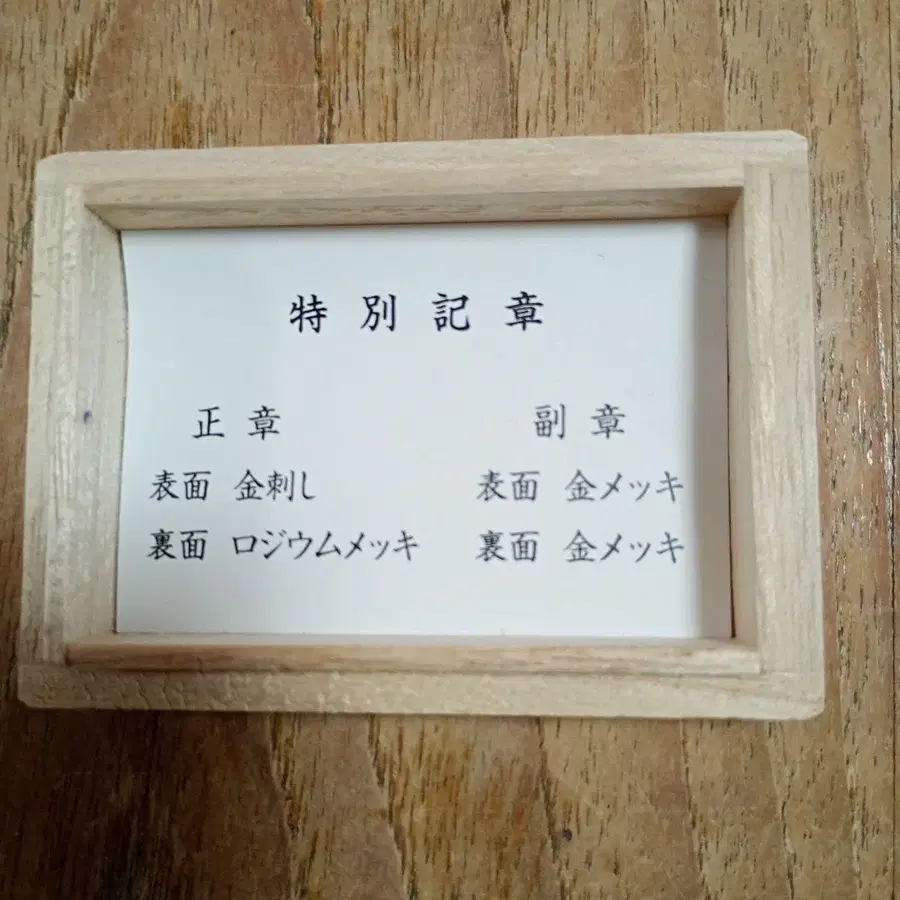 特別記章
正章 副章
表面 金刺し 表面 金メッキ
裏面 ロジウムメッキ 裏面 金メッキ